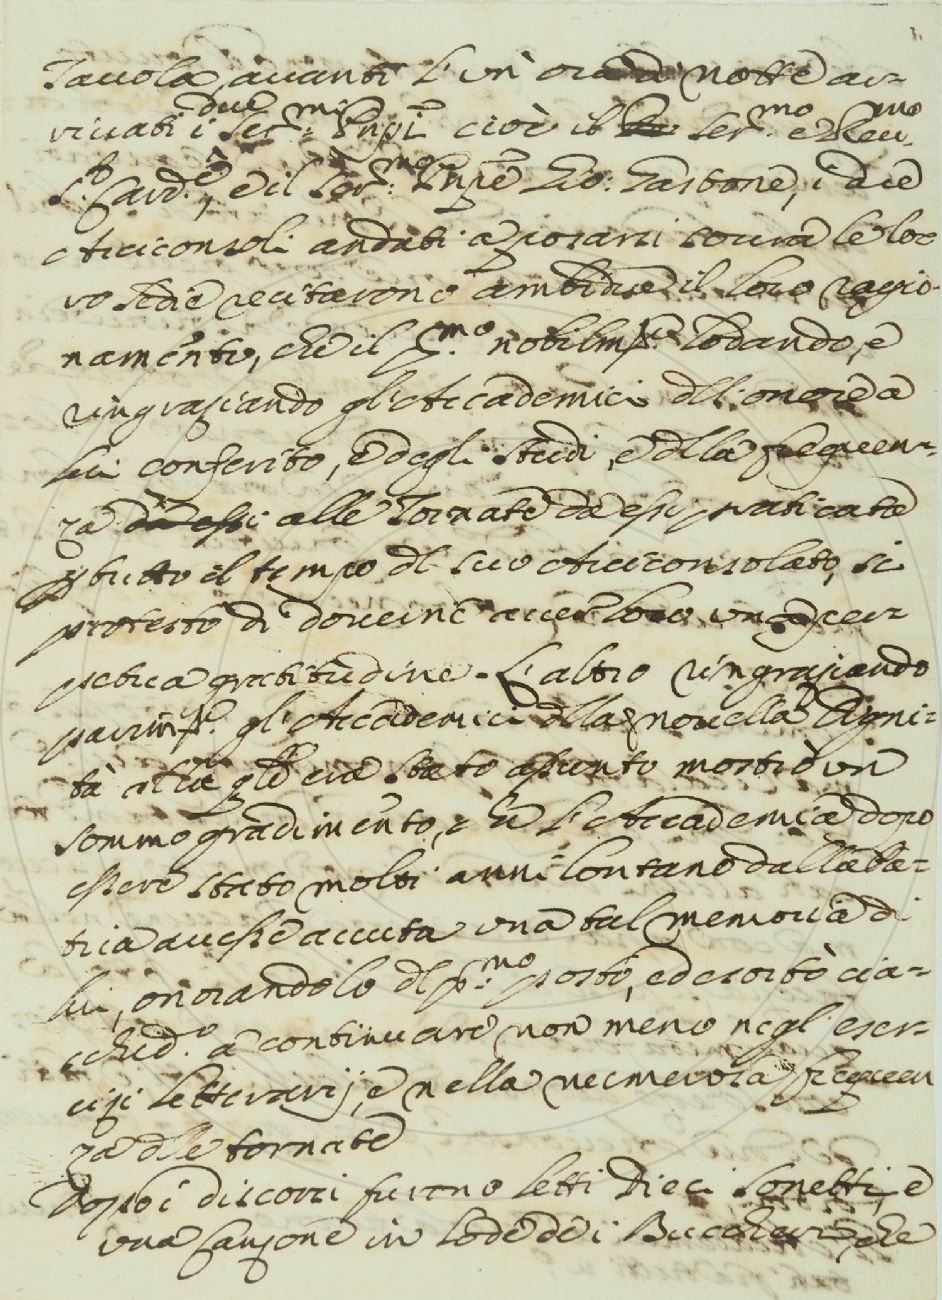 Tavola, avanti l'un' ora di notte ar-
rivati i due Ser.mi Prpi cioè il Ser.mo e Rev.mo
S.r Card.e, e il Ser.mo Prpe Gio: Gastone, i due
Arciconsoli andati a posarsi sovra le lo-
ro sedie recitarono ambidue il loro ragio-
namento, che il p.mo nobilmte lodando, e
ringraziando gl'Accademici dll'onore a
lui conferito, e degli studi, e dlla frequen-
za alle Tornate da essi praticate
p tutto il tempo dl suo Arciconsolato, si
protestò di doverne aver loro una per-
petua gratitudine. L'altro ringraziando
parimte gl'Accademici dlla novella Digni-
tà alla qle era stato assunto mostrò un
sommo gradimento, che l'Accademia dopo
essere stato molti anni lontano dalla Pa-
tria avesse avuta una tal memoria di
lui, onorandolo dl p.mo posto, ed esortò cia-
sched.o a continuare non meno negl'eser-
cizi letterarij, e nella numerosa frequen
za dlle tornate
Dopo i discorsi furono letti Dieci Sonetti, e
una Canzone in lode de i Buccheri, che